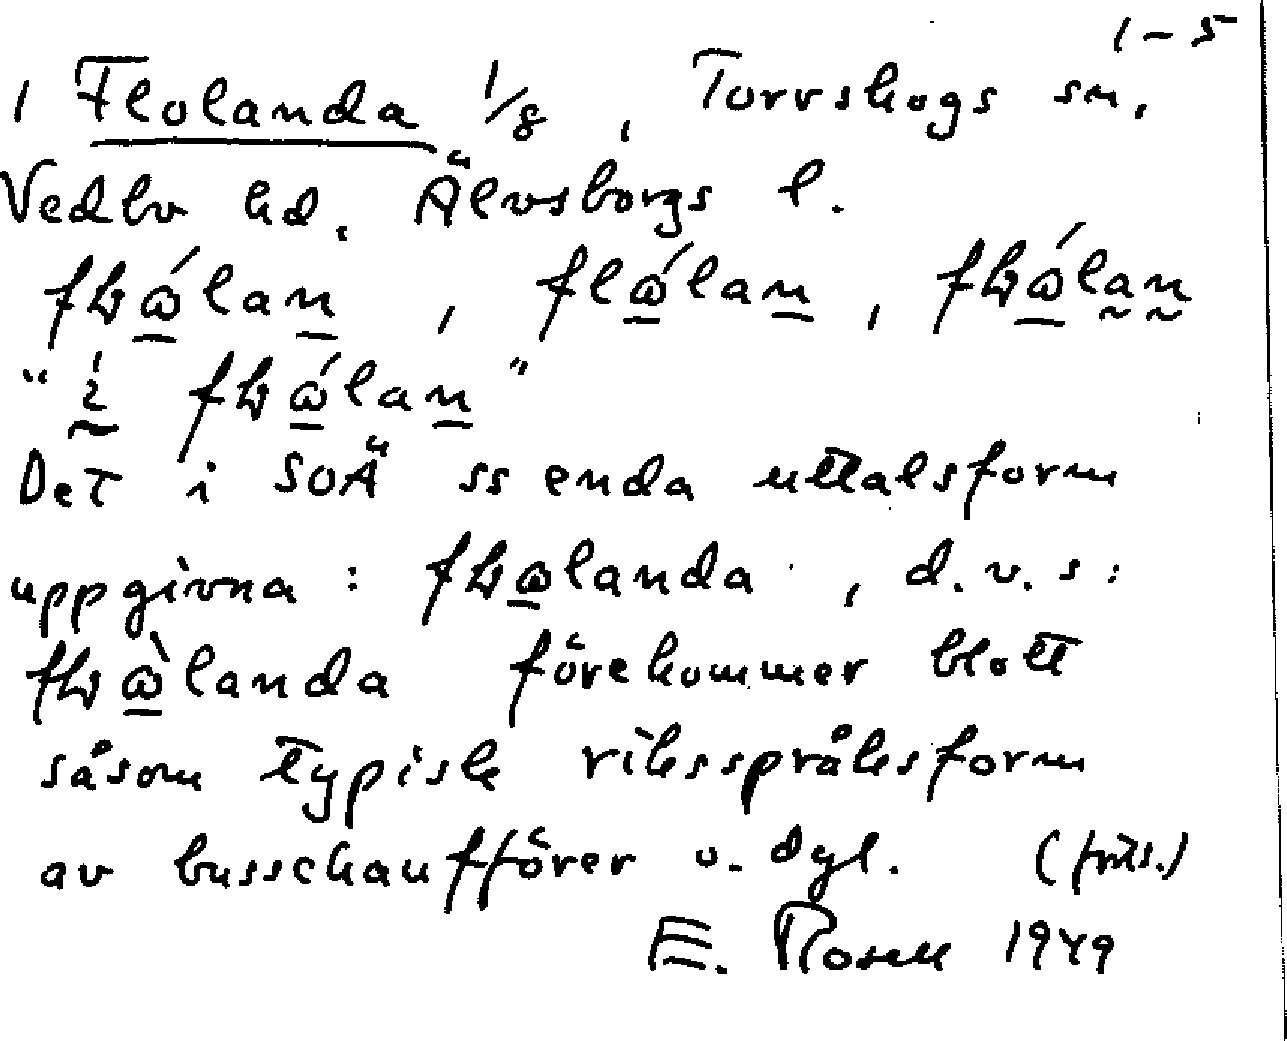 1-5
1 Flolanda 1/8, Torrskogs sn,
Vedbo hd, Älvsborgs l.
flώlan, flώlan, flώlan
"i flώlan"
Det i SOÄ ss enda uttalsform
uppgivna: flωlanda, d.v.s:
flὼlanda förekommer blott
såsom typisk riksspråksform
av busschaufförer o. dyl. (forts.)
E. Rosell 1949